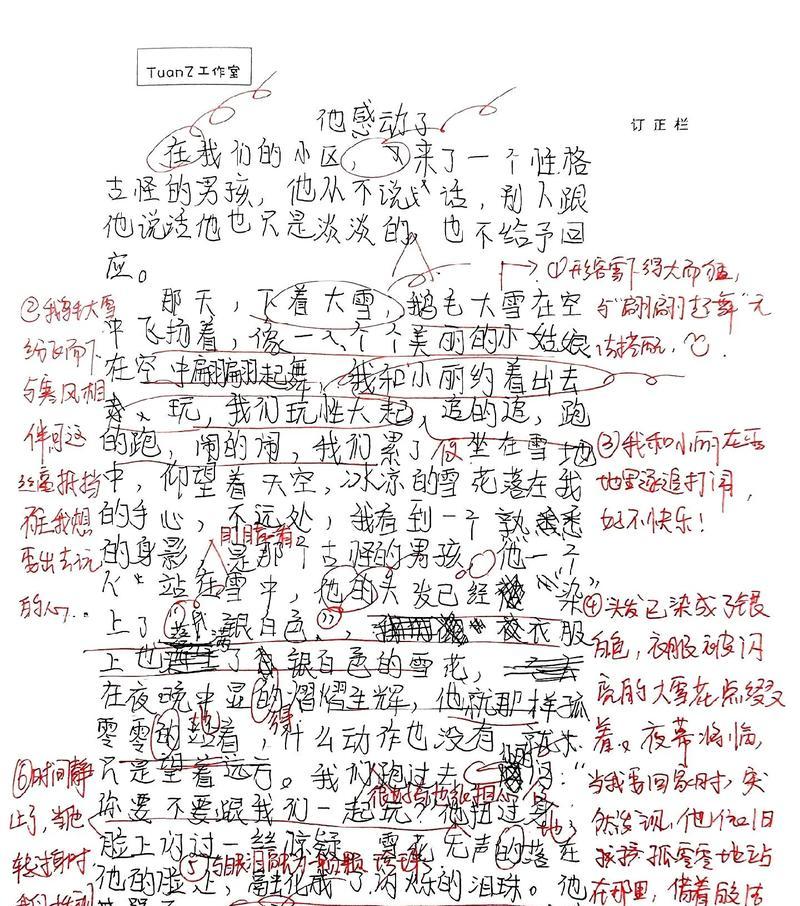 TuanZ工作室
他感动了
订正栏
在我们的小区,又来了一个性格
古怪的男孩,他从不说话,别人跟
他说话他也只是淡淡的,也不给予回
应。
那天,下着大雪,鹅毛大雪在空
中飞扬着,像一个个美丽的小姑娘
在空中翩翩起舞,我和小丽约着出去
玩,我们玩性大起,追的追,跑
的跑,闹的闹,我们累了便坐在雪地
中,仰望着天空,冰凉的雪花落在我
的手心,不远处,我看到一个熟悉
的身影,是那个古怪的男孩,他一个
人站在雪中,他的头发已经被“染”
上了银白色,衣服
上也了银白色的雪花,
在夜晚中显的熠熠生辉,他就那样孤
零零的站着,什么动作也没有
只是望着远方。我们跑过去问:“
你要不要跟我们一起玩,他扭过身
脸上闪过一丝惊疑,雪花无声的落在
他的脸上,融化成了闪烁的泪珠。他
①形容雪下得大而急,
与“翩翩起舞”无
法搭配,
②鹅毛大雪
纷飞而下
与寒风相
伴可这
丝毫抵挡
不住我想
要出去玩
的心
③我和小丽在雪
地里逐追打闹,
好不快乐!
④头发已染成了银
白色,衣服被闪
亮的大雪花点缀
着。夜幕将临,
当我要回家时,突
然发现,他依旧
孤零零地站
在那里,借着
⑥时间静
止了,当他
转过身时